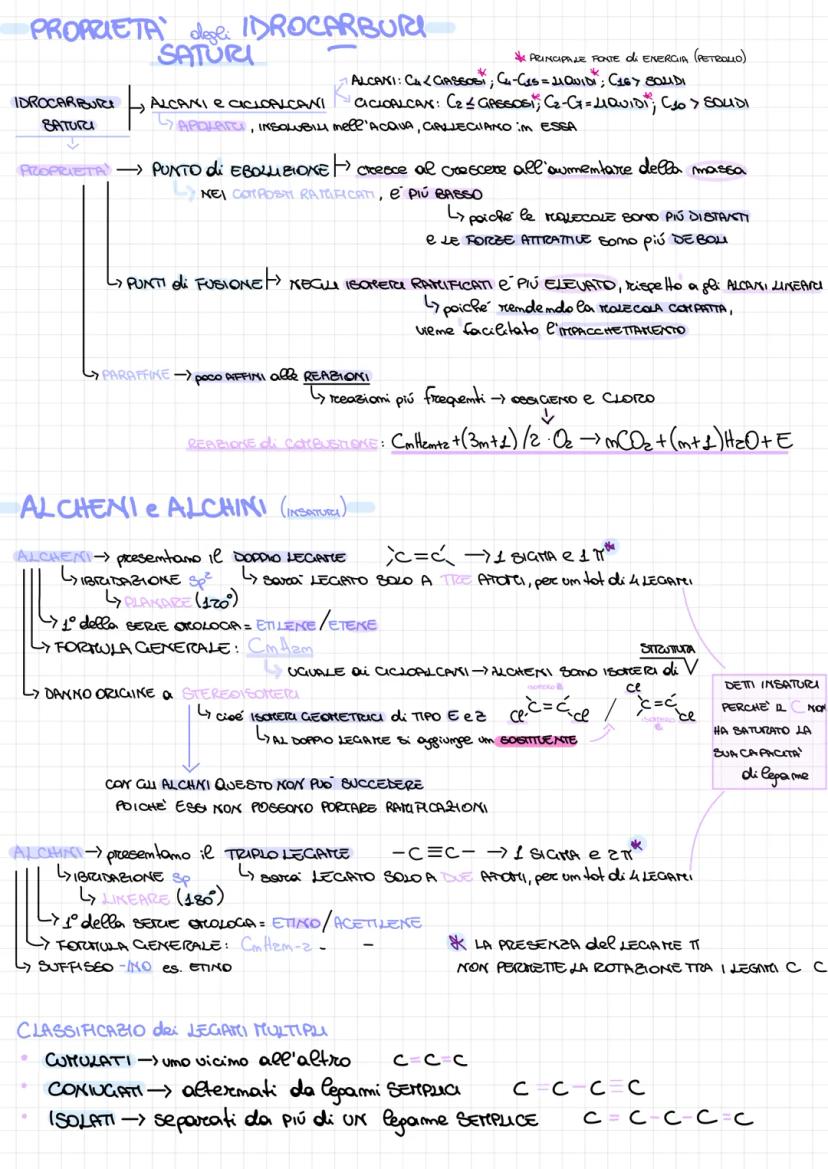 PROPRIETA' degli IDROCARBURI
SATURI
* PRINCIPALE FONTE di ENERGIA (PETROLIO)
IDROCARBURI SATURI → ALCANI e CICLOALCANI
ALCANI: C4 < GASSOSI*; C4-C15 = LIQUIDI*; C16 > SOLIDI
CICLOALCANI: C2 ≤ GASSOSI*; C2-C7 = LIQUIDI*; C10 > SOLIDI
↳ APOLARI, INSOLUBILI nell'ACQUA, GALLEGGIANO in ESSA
PROPRIETA' → PUNTO di EBOLLIZIONE → cresce al crescere all'aumentare della massa
↳ NEI COMPOSTI RAMIFICATI, E' PIÚ BASSO
↳ poiché le MOLECOLE SONO PIÚ DISTANTI
e LE FORZE ATTRATTIVE sono piú DEBOLI
↳ PUNTI di FUSIONE → NEGLI ISOMERI RAMIFICATI e' PIÚ ELEVATO, rispetto a gli ALCANI LINEARI
↳ poiché rendendo la MOLECOLA COMPATTA,
viene facilitato l'IMPACCHETTAMENTO
↳ PARAFFINE → poco AFFINI alle REAZIONI
↳ reazioni piú frequenti → OSSIGENO e CLORO
REAZIONE di COMBUSTIONE: CnH2n+2 + (3n+1)/2 · O2 → nCO2 + (n+1)H2O + E
ALCHENI e ALCHINI (INSATURI)
ALCHENI → presentano il DOPPIO LEGAME >C=C< → 1 SIGMA e 1 π*
↳ IBRIDAZIONE sp² ↳ sarà LEGATO SOLO A TRE ATOMI, per un tot di 4 LEGAMI
↳ PLANARE (120°)
↳ 1° della SERIE OMOLOGA = ETILENE/ETENE
↳ FORMULA GENERALE: CnH2n
STRUTTURA
↳ UGUALE ai CICLOALCANI → ALCHENI SONO ISOMERI di
DETTI INSATURI
PERCHE' IL C NON
HA SATURATO LA
SUA CAPACITA'
di legame
↳ DANNO ORIGINE a STEREOISOMERI
↳ cioé ISOMERI GEOMETRICI di TIPO E e Z Cl C=C Cl / Cl C=C Cl
↳ AL DOPPIO LEGAME si aggiunge un SOSTITUENTE
CON GLI ALCHINI QUESTO NON PUO' SUCCEDERE
POICHE' ESSI NON POSSONO PORTARE RAMIFICAZIONI
ALCHINI → presentano il TRIPLO LEGAME -C≡C- → 1 SIGMA e 2π*
↳ IBRIDAZIONE sp ↳ sarà LEGATO SOLO A DUE ATOMI, per un tot di 4 LEGAMI
↳ LINEARE (180°)
↳ 1° della SERIE OMOLOGA = ETINO/ACETILENE
↳ FORMULA GENERALE: CnH2n-2
* LA PRESENZA del LEGAME π
↳ SUFFISSO -INO es. ETINO
NON PERMETTE LA ROTAZIONE TRA I LEGAMI C C
CLASSIFICAZIO dei LEGAMI MULTIPLI
• CUMULATI → uno vicino all'altro C=C=C
• CONIUGATI → alternati da legami SEMPLICI C=C-C≡C
• ISOLATI → separati da PIÚ di UN legame SEMPLICE C=C-C-C=C